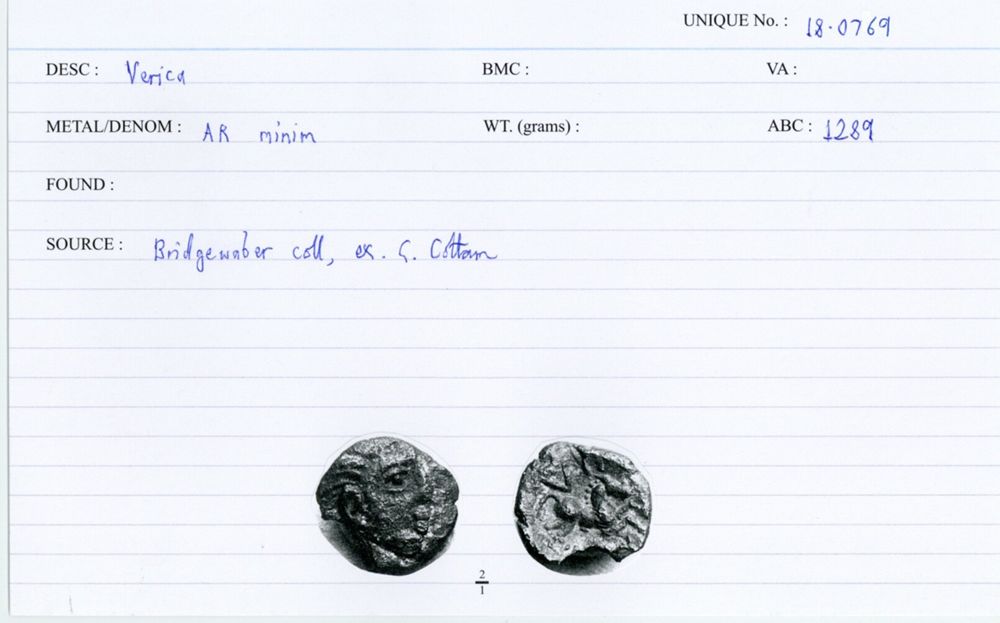 UNIQUE No. : 18.0769
DESC : Verica BMC : VA :
METAL/DENOM : AR minim WT. (grams) : ABC : 1289
FOUND :
SOURCE : Bridgewater coll, ex. G. Cottam
2
1